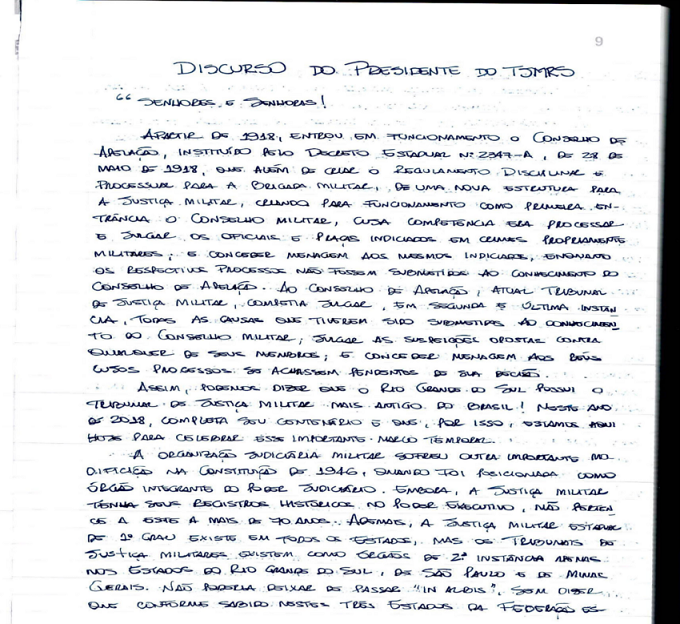 9
DISCURSO DO PRESIDENTE DO TJMRS
"SENHORES E SENHORAS!
APARTIR DE 1918, ENTROU EM FUNCIONAMENTO O CONSELHO DE
APELAÇÃO, INSTITUÍDO PELO DECRETO ESTADUAL Nº 2347-A, DE 28 DE
MAIO DE 1918, QUE ALÉM DE CRIAR O REGULAMENTO DISCIPLINAR E
PROCESSUAL PARA A BRIGADA MILITAR, DE UMA NOVA ESTRUTURA PARA
A JUSTIÇA MILITAR, CRIANDO PARA FUNCIONAMENTO COMO PRIMEIRA EN-
TRÂNCIA O CONSELHO MILITAR, CUJA COMPETÊNCIA ERA PROCESSAR
E JULGAR OS OFICIAIS E PRAÇAS INDICIADOS EM CRIMES PROPRIAMENTE
MILITARES; E CONCEDER MENAGEM AOS MESMOS INDICIADOS, ENQUANTO
OS RESPECTIVOS PROCESSOS NÃO FOSSEM SUBMETIDOS AO CONHECIMENTO DO
CONSELHO DE APELAÇÃO. AO CONSELHO DE APELAÇÃO, ATUAL TRIBUNAL
DE JUSTIÇA MILITAR, COMPETIA JULGAR, EM SEGUNDA E ÚLTIMA INSTÂN
CIA, TODAS AS CAUSAS QUE TIVEREM SIDO SUBMETIDAS AO CONHECIMEN-
TO DO CONSELHO MILITAR; JULGAR AS SUSPEIÇÕES OPOSTAS CONTRA
QUALQUER DE SEUS MEMBROS; E CONCEDER MENAGEM AOS RÉUS
CUJOS PROCESSOS SE ACHASSEM PENDENTES DE SUA DECISÃO.
ASSIM, PODEMOS DIZER QUE O RIO GRANDE DO SUL POSSUI O
TRIBUNAL DE JUSTIÇA MILITAR MAIS ANTIGO DO BRASIL! NESTE ANO
DE 2018, COMPLETA SEU CENTENÁRIO E QUE, POR ISSO, ESTAMOS AQUI
HOJE PARA CELEBRAR ESSE IMPORTANTE MARCO TEMPORAL.
A ORGANIZAÇÃO JUDICIÁRIA MILITAR SOFREU OUTRA IMPORTANTE MO-
DIFICAÇÃO NA CONSTITUIÇÃO DE 1946, QUANDO FOI POSICIONADA COMO
ÓRGÃO INTEGRANTE DO PODER JUDICIÁRIO. EMBORA, A JUSTIÇA MILITAR
TENHA SEUS REGISTROS HISTÓRICOS NO PODER EXECUTIVO, NÃO PERTEN-
CE A ESTE A MAIS DE 70 ANOS. ADEMAIS, A JUSTIÇA MILITAR ESTADUAL
DE 1º GRAU EXISTE EM TODOS OS ESTADOS, MAS OS TRIBUNAIS DE
JUSTIÇA MILITARES EXISTEM COMO ÓRGÃOS DE 2ª INSTÂNCIA APENAS
NOS ESTADOS DO RIO GRANDE DO SUL, DE SÃO PAULO E DE MINAS
GERAIS. NÃO PODERIA DEIXAR DE PASSAR "IN ALBIS", SEM DIZER
QUE CONFORME SABIDO NESTES TRÊS ESTADOS DA FEDERAÇÃO ES-